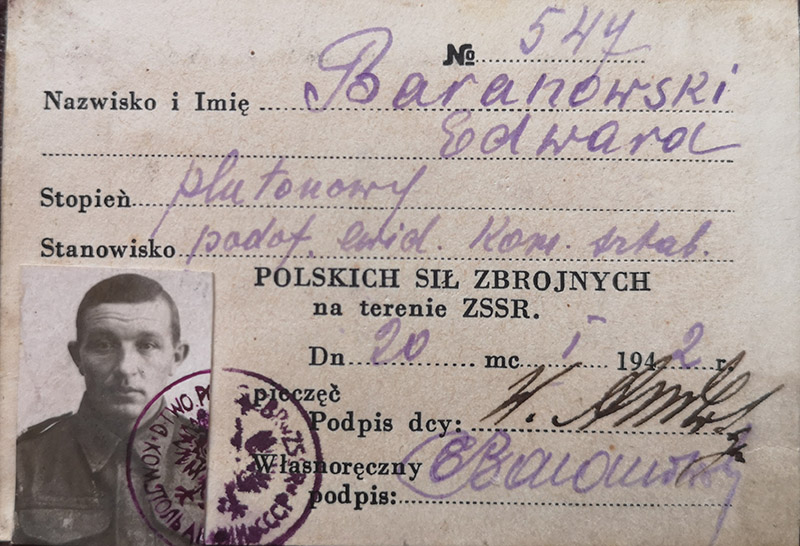 № 547
Nazwisko i Imię Baranowski
Edward
Stopień plutonowy
Stanowisko podof. ewid. Kom. sztab.
POLSKICH SIŁ ZBROJNYCH
na terenie ZSSR.
Dn 20 mc I 1942 r.
pieczęć
Podpis dcy: W.
Własnoręczny
podpis: E Baranowski